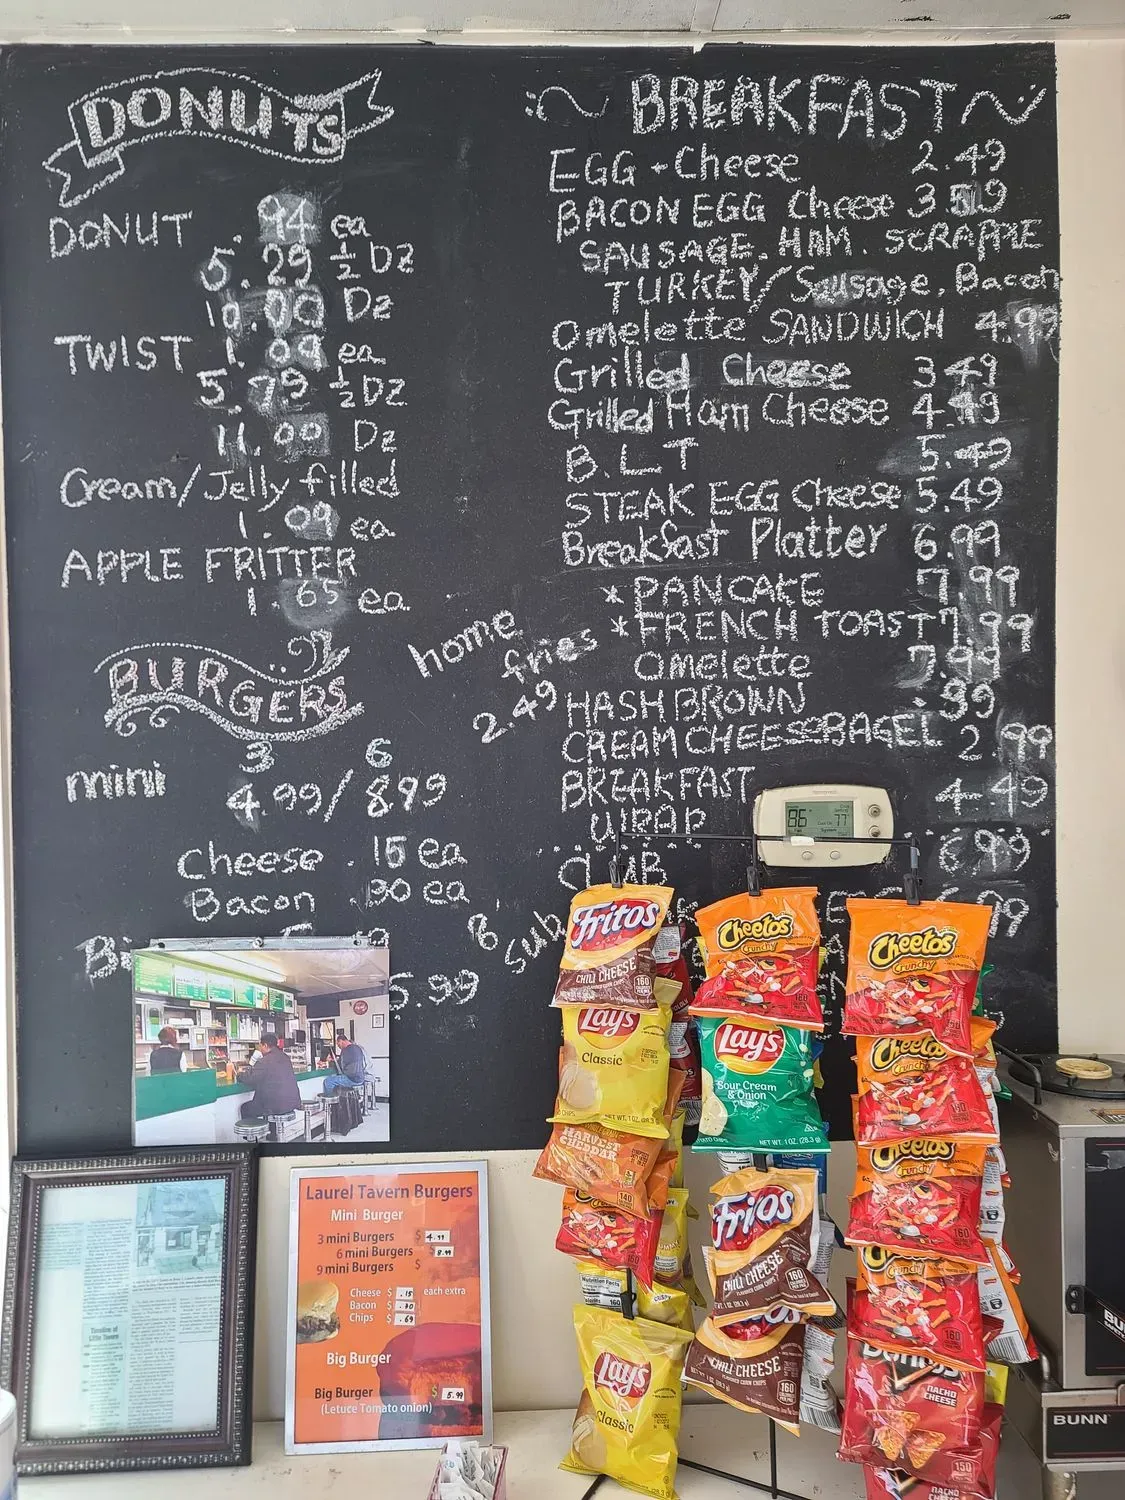 DONUTS
DONUT .94 ea
5.29 ½ DZ
10.00 Dz
TWIST 1.09 ea
5.79 ½ DZ
11.00 Dz
Cream/Jelly filled
1.09 ea
APPLE FRITTER
1.65 ea
BURGERS
3 6
mini 4.99/8.99
Cheese .15 ea
Bacon .30 ea
5.99
home
fries
2.49
BREAKFAST
EGG + Cheese 2.49
BACON EGG Cheese 3.59
SAUSAGE. HAM. SCRAPPLE
TURKEY/Sausage, Bacon
Omelette SANDWICH 4.99
Grilled Cheese 3.49
Grilled Ham Cheese 4.49
B.L.T 5.49
STEAK EGG Cheese 5.49
Breakfast Platter 6.99
* PANCAKE 7.99
* FRENCH TOAST 7.99
Omelette 7.99
HASH BROWN .99
CREAM CHEESE BAGEL 2.99
BREAKFAST 4.49
WRAP
CLUB 6.99
8" Sub
Laurel Tavern Burgers
Mini Burger
3 mini Burgers $ 4.99
6 mini Burgers $ 8.99
9 mini Burgers $
Cheese $ .15 each extra
Bacon $ .30
Chips $ .69
Big Burger
Big Burger $ 5.99
(Letuce Tomato onion)
Timeline of
Little Tavern
86
77
Fritos
CHILI CHEESE
160
Lay's
Classic
HARVEST
CHEDDAR
140
Nutrition Facts
160
Lay's
Classic
Cheetos
Crunchy
Lay's
Sour Cream
& Onion
NET WT. 1 OZ. (28.3 g)
Fritos
CHILI CHEESE
160
CHILI CHEESE
160
Cheetos
Crunchy
Cheetos
Crunchy
Cheetos
Crunchy
160
Crunchy
160
Doritos
NACHO
CHEESE
150
NACHO
CHEESE
BUNN